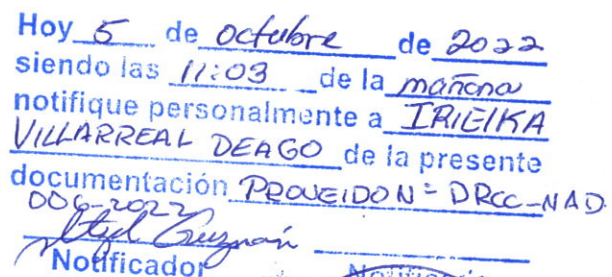 Hoy 5 de octubre de 2022
siendo las 11:03 de la mañana
notifique personalmente a IRIEIKA
VILLARREAL DEAGO de la presente
documentación PROVEIDO N= DRCC-NAD.
006-2022
Guzmán
Notificador